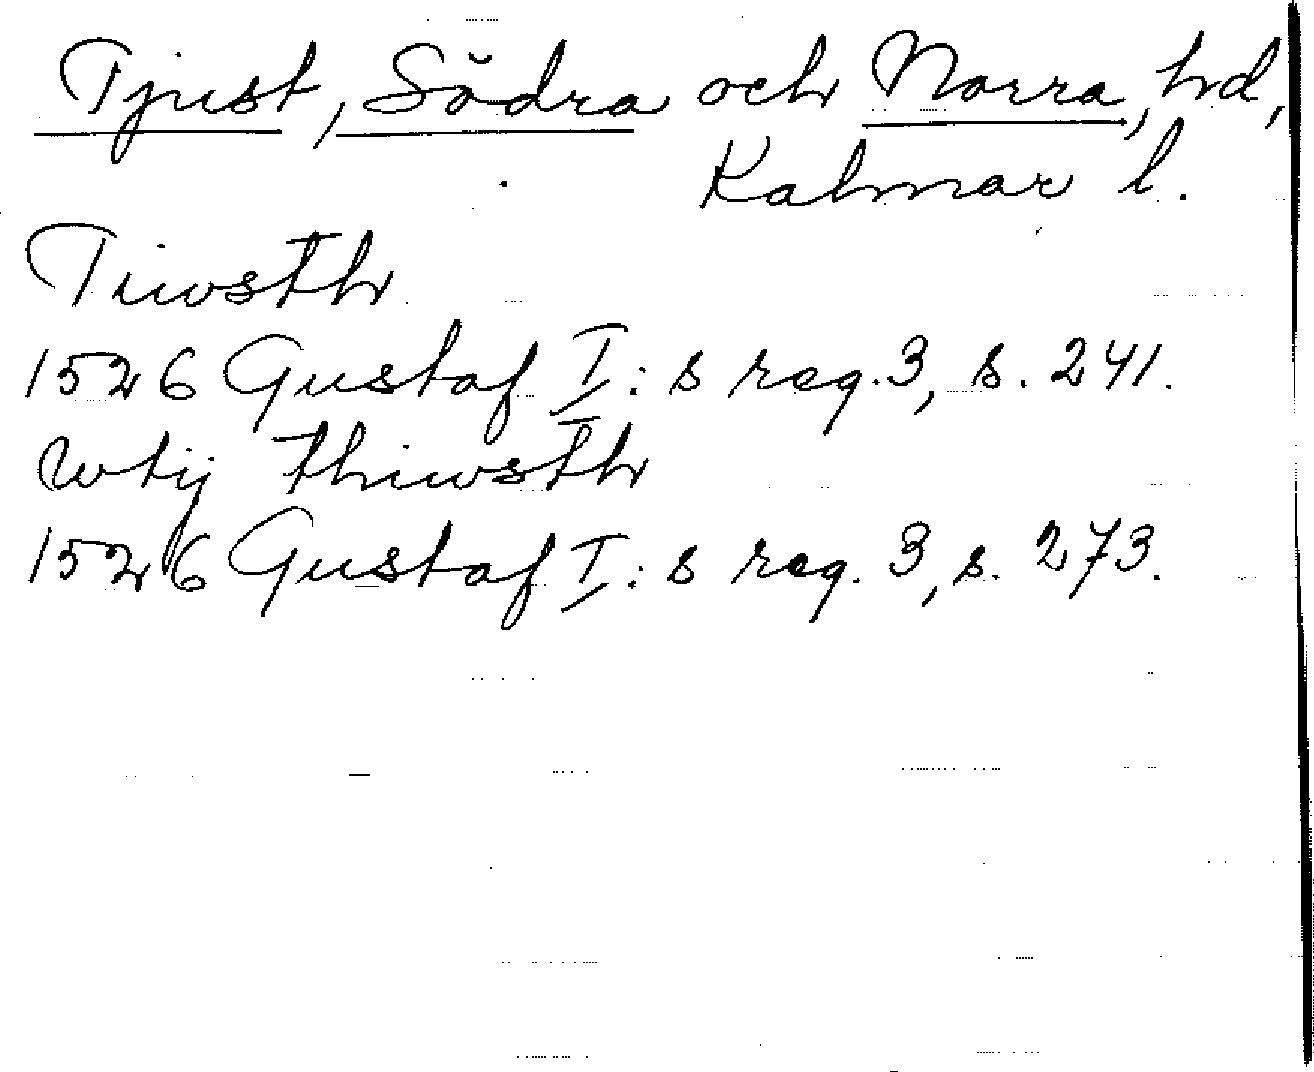 Tjust, Södra och Norra, hd,
Kalmar l.
Tiwsth
1526 Gustaf I:s reg. 3, s. 241.
wtij thiwsth
1526 Gustaf I:s reg. 3, s. 273.